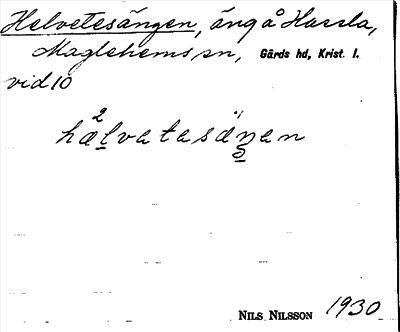 Helvetesängen, äng å Hassla,
Maglehems sn, Gärds hd, Krist. l.
vid 10
hælvatasäŋan
NILS NILSSON 1930